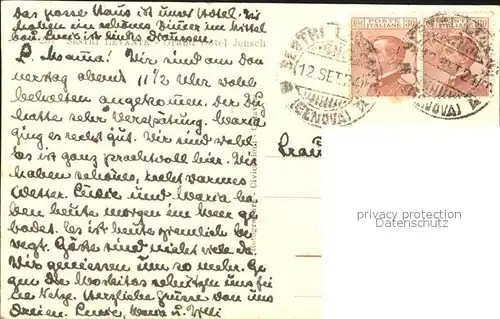 Das grosse Haus ist unser Hotel. Wir
haben ein schönes Zimmer im Mittel
bau. Luxie ist links Draussen
SESTRI LEVANTE - Grand Hotel Jensch
L. Mama! Wir sind am Don
nerstag abend 11 1/2 Uhr wohl
behalten angekommen. Der Zug
hatte sehr Verspätung. Maria
ging es recht gut. Wir sind wohl
Es ist ganz prachtvoll hier. Wir
haben schönes, recht warmes
Wetter. Luxie und Maria ha
ben heute morgen im Meer ge
badet. Es ist heute ziemlich be
wegt. Gäste sind nicht viele da.
Wir geniessen um so mehr. Ge
gen die Moskitos schützen uns fei
ne Netze. Herzliche Grüsse von uns
Dreien. Luxie, Maria u. Willi
POSTE ITALIANE
SESTRI LEVANTE
12.SET.24
(GENOVA)
privacy protection
Datenschutz